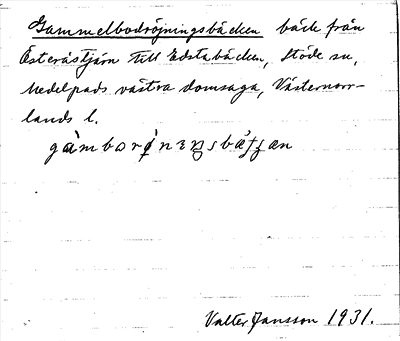 Gammelbodröjningsbäcken bäck från
Österåstjärn till Edstabäcken, Stöde sn,
Medelpads västra domsaga, Västernorr-
lands l.
Valter Jansson 1931.